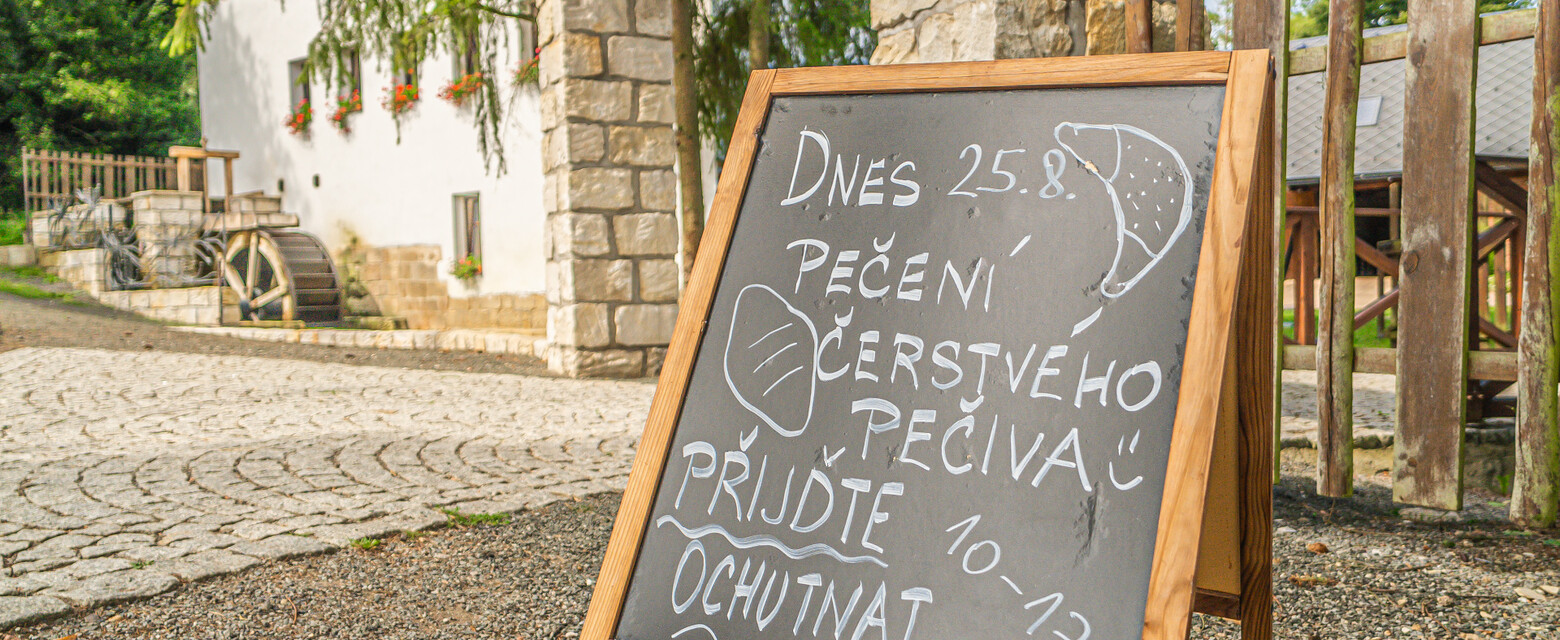 DNES 25.8.
PEČENÍ
ČERSTVÉHO
PEČIVA
PŘIJĎTE
OCHUTNAT
10-